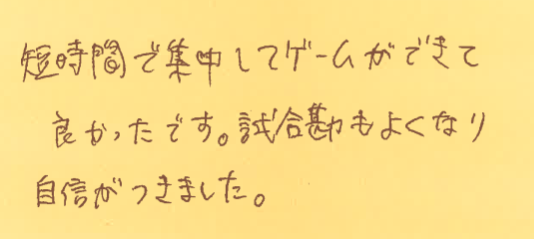 短時間で集中してゲームができて
良かったです。試合勘もよくなり
自信がつきました。